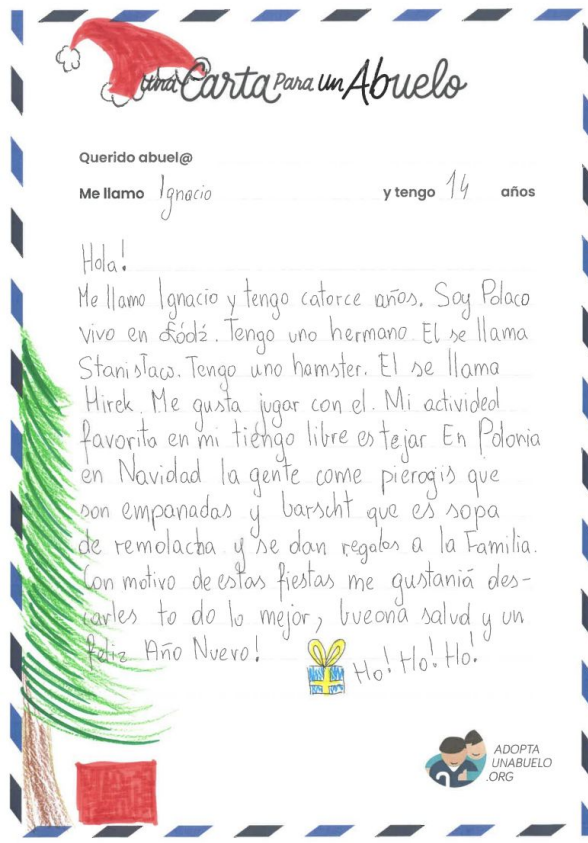 una Carta Para un Abuelo
Querido abuel@
Me llamo Ignacio y tengo 14 años
Hola!
Me llamo Ignacio y tengo catorce años. Soy Polaco
vivo en Łódź. Tengo uno hermano. El se llama
Stanisław. Tengo uno hamster. El se llama
Hirek. Me gusta jugar con el. Mi actividad
favorita en mi tiengo libre es tejar En Polonia
en Navidad la gente come pierogis que
son empanadas y barscht que es sopa
de remolacha y se dan regalos a la Familia.
Con motivo de estas fiestas me gustaniá des-
carles to do lo mejor, bueona salud y un
feliz Año Nuevo!
Ho! Ho! Ho!
ADOPTA
UNABUELO
.ORG